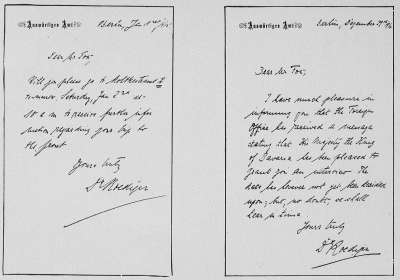 Auswärtiges Amt
Berlin, Jan 1st
Dear Mr Fox,
Will you please go to Moltkestrasse
to-morrow, Saturday, Jan 2nd at
10 a m to receive further infor
mation regarding your trip to
the front
Yours truly
Dr Roediger
Auswärtiges Amt
Berlin, December
Dear Mr Fox,
I have much pleasure in
informing you that the Foreign
Office has received a message
stating that His Majesty the King
of Bavaria has been pleased to
grant you an interview The
date has however not yet been decided
upon; but, no doubt, we shall
hear in time
Yours truly
Dr Roediger